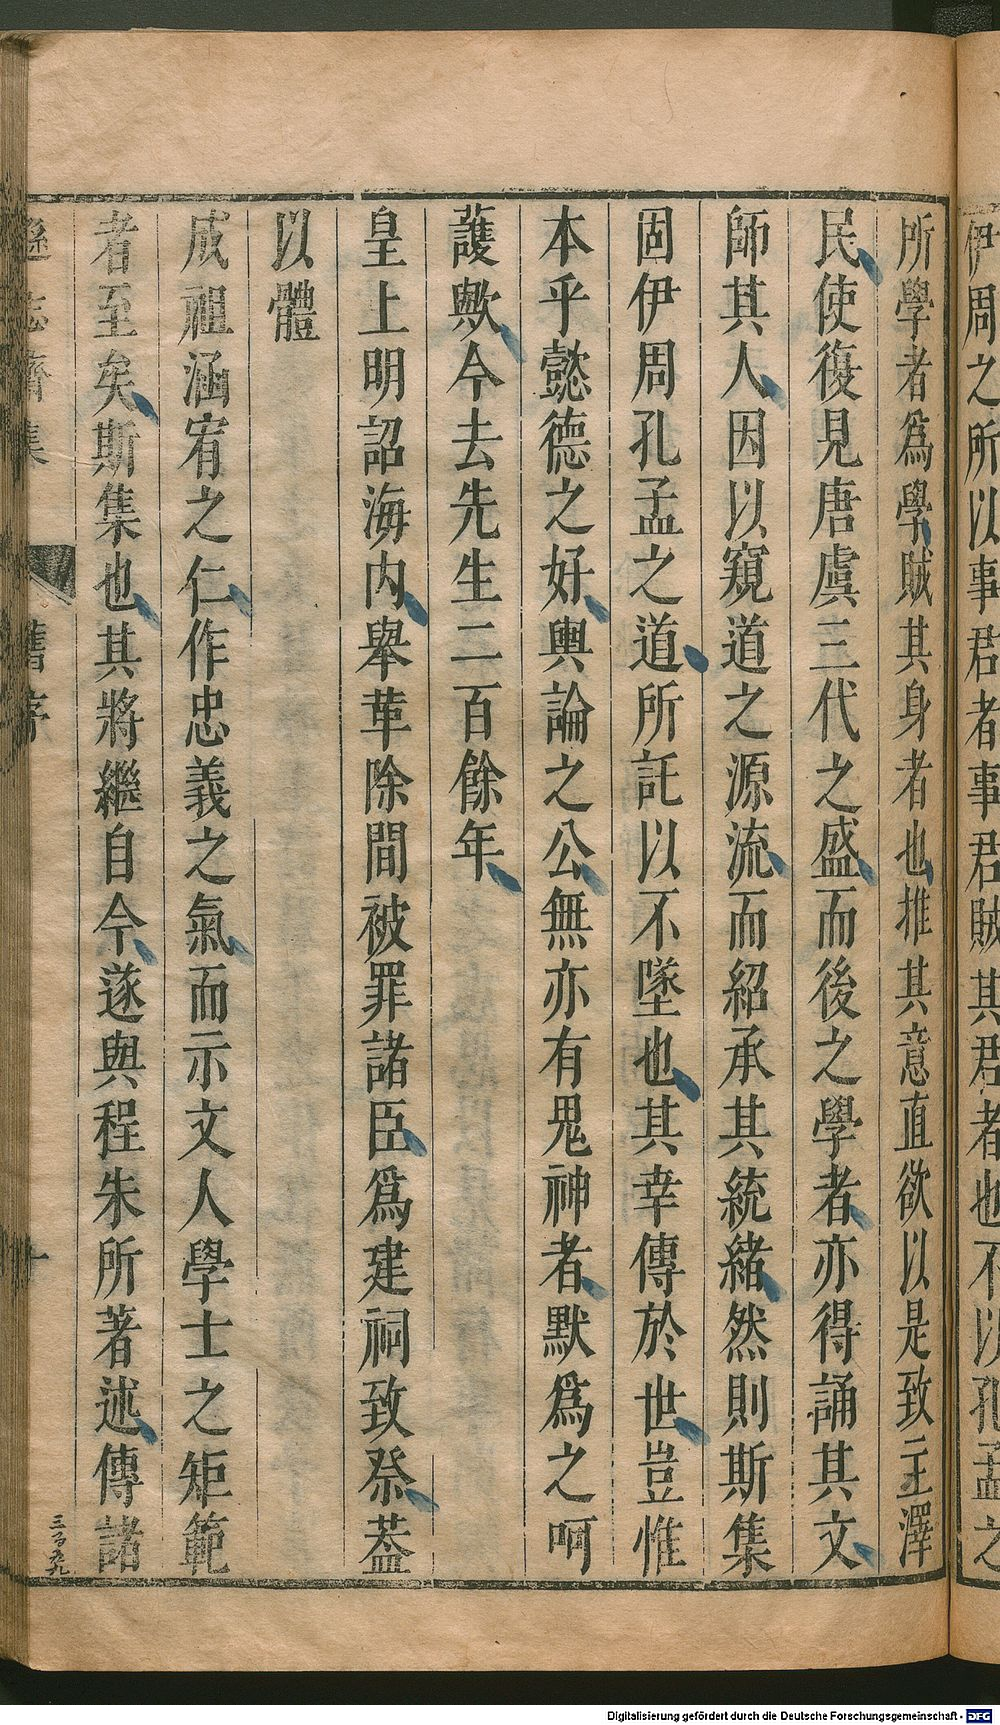 伊周之所以事君者事君賊其君者也不以孔孟之
所學者爲學賊其身者也推其意直欲以是致主澤
民使復見唐虞三代之盛而後之學者亦得誦其文
師其人因以窺道之源流而紹承其統緒然則斯集
固伊周孔孟之道所託以不墜也其幸傳於世豈惟
本乎懿德之好輿論之公無亦有鬼神者默爲之呵
護歟今去先生二百餘年
皇上明詔海內舉革除間被罪諸臣爲建祠致祭葢
以體
成祖涵宥之仁作忠義之氣而示文人學士之矩範
者至矣斯集也其將繼自今遂與程朱所著述傳諸
遜志齋集
舊序
十
三百五九
Digitalisierung gefördert durch die Deutsche Forschungsgemeinschaft - DFG